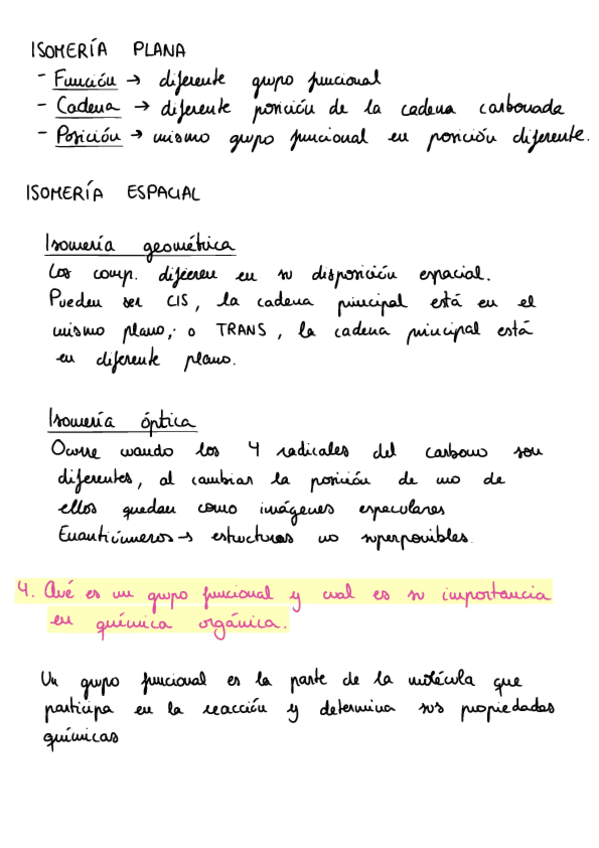 ISOMERÍA PLANA
- Función → diferente grupo funcional
- Cadena → diferente posición de la cadena carbonada
- Posición → mismo grupo funcional en posición diferente.
ISOMERÍA ESPACIAL
Isomería geométrica
Los comp. difieren en su disposición espacial.
Pueden ser CIS, la cadena principal está en el
mismo plano, o TRANS, la cadena principal está
en diferente plano.
Isomería óptica
Ocurre cuando los 4 radicales del carbono son
diferentes, al cambiar la posición de uno de
ellos quedan como imágenes especulares
Enantiómeros → estructuras no superponibles.
4. Qué es un grupo funcional y cual es su importancia
en química orgánica.
Un grupo funcional es la parte de la molécula que
participa en la reacción y determina sus propiedades
químicas